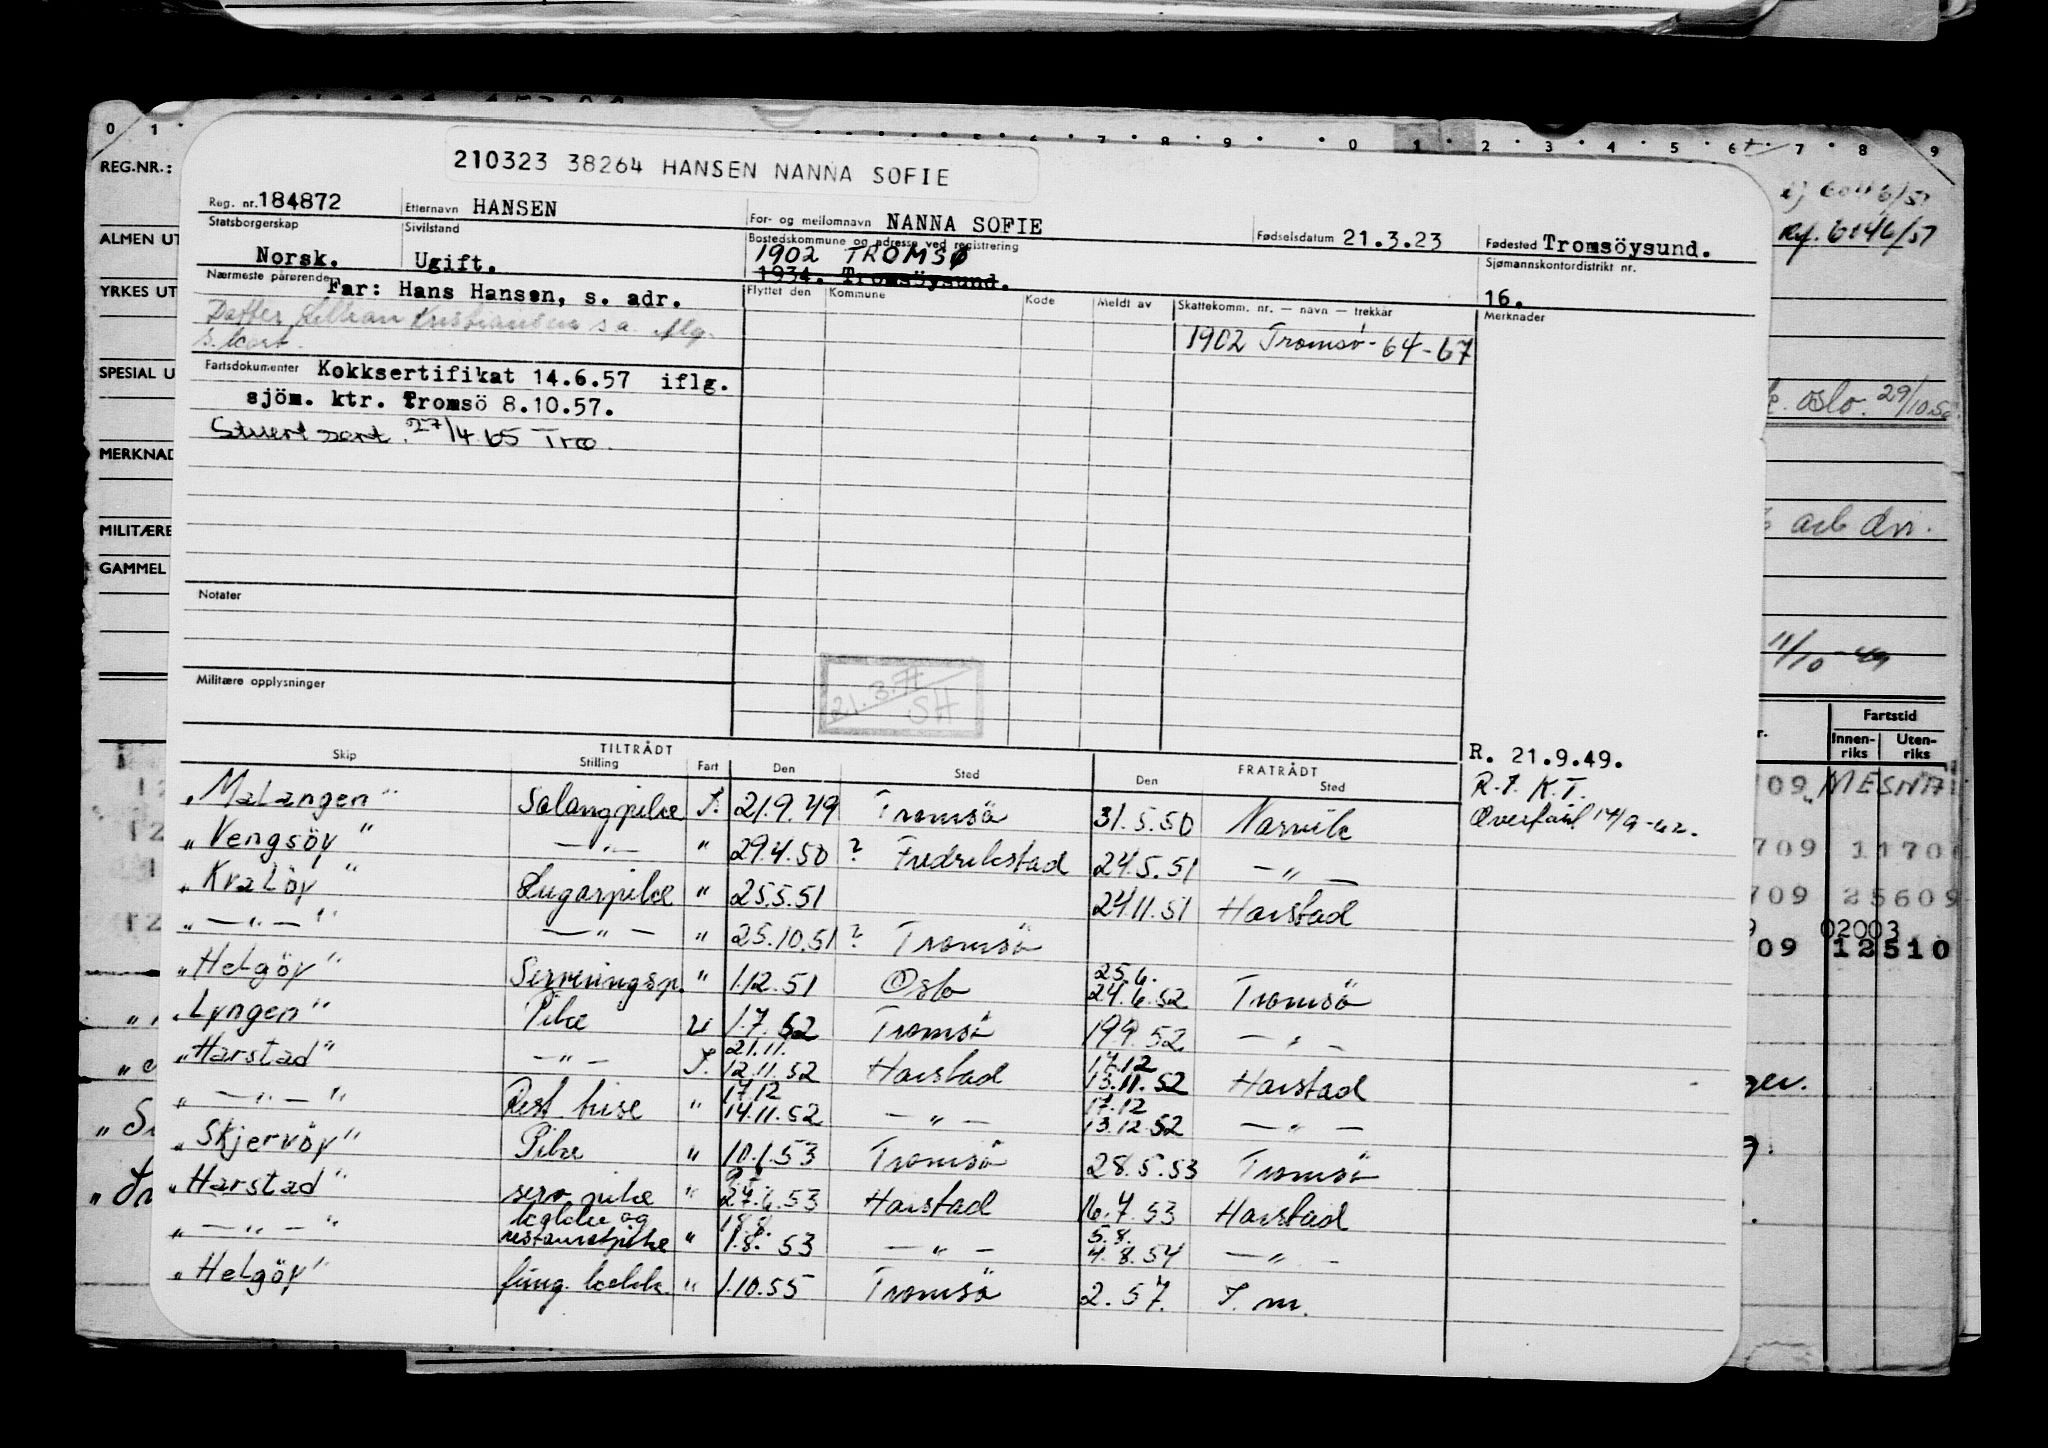 0 1 . . . . 5 . 6 . 7 . 8 . 9 . 0 . 1 . 2 . 3 . 4 . 5 . 6 . 7 . 8 . 9
REG.NR.:
210323 38264 HANSEN NANNA SOFIE
Reg. nr. 184872 Etternavn HANSEN For- og mellomnavn NANNA SOFIE Fødselsdatum 21.3.23 Fødested Tromsöysund.
Statsborgerskap Sivilstand Bostedskommune og adresse ved registrering Sjømannskontordistrikt nr.
Norsk. Ugift. 1902 TROMSØ 16.
1934. Tromsöysund.
Nærmeste pårørende Far: Hans Hansen, s. adr. Flyttet den Kommune Kode Meldt av Skattekomm. nr. — navn — trekkår Merknader
Datter Lillian Kristiansen s.a. iflg.
s. kort.
1902 Tromsø - 64-67
Fartsdokumenter Kokksertifikat 14.6.57 iflg.
sjöm. ktr. Tromsö 8.10.57.
Stuert sert. 27/4 65 Tro.
Notater
Militære opplysninger
21.3.71
SH
ALMEN UT
YRKES UT
SPESIAL U
MERKNAD
MILITÆRE
GAMMEL
6046/57
Ref. 6146/57
Oslo. 29/10.56
arb dir.
11/10-49
Fartstid
Innen-riks Uten-riks
TILTRÅDT FRATRÅDT
Skip Stilling Fart Den Sted Den Sted
R. 21.9.49.
R.T. K.T.
Overført 14/9-62.
"Malangen" Salongpike I. 21.9.49 Tromsö 31.5.50 Narvik
"Vengsöy" — " — " 29.4.50 ? Fredrikstad 24.5.51 — " —
"Kvalöy" Lugarpike " 25.5.51 24.11.51 Harstad
" — " — " — " — " 25.10.51 ? Tromsö
"Helgöy" Serveringsp. " 1.12.51 Oslo 25.6. 24.6.52 Tromsö
"Lyngen" Pike U 1.7.52 Tromsö 19.9.52 — " —
"Harstad" — " — I. 21.11. 12.11.52 Harstad 17.12 13.11.52 Harstad
" — " — " Rest. bise " 17.12 14.11.52 — " — 17.12 13.12.52 — " —
"Skjervöy" Pike " 10.1.53 Tromsö 28.5.53 Tromsö
"Harstad" serv. pike " 27.6.53 Harstad 16.7.53 Harstad
" — " — " kokke og restauratpike " 18.8. 1.8.53 — " — 5.8. 4.8.54 — " —
"Helgöy" fung. kokk. " 1.10.55 Tromsö 2.57. I. m.
09 MESNA
709 11706
709 25609
02003
09 12510